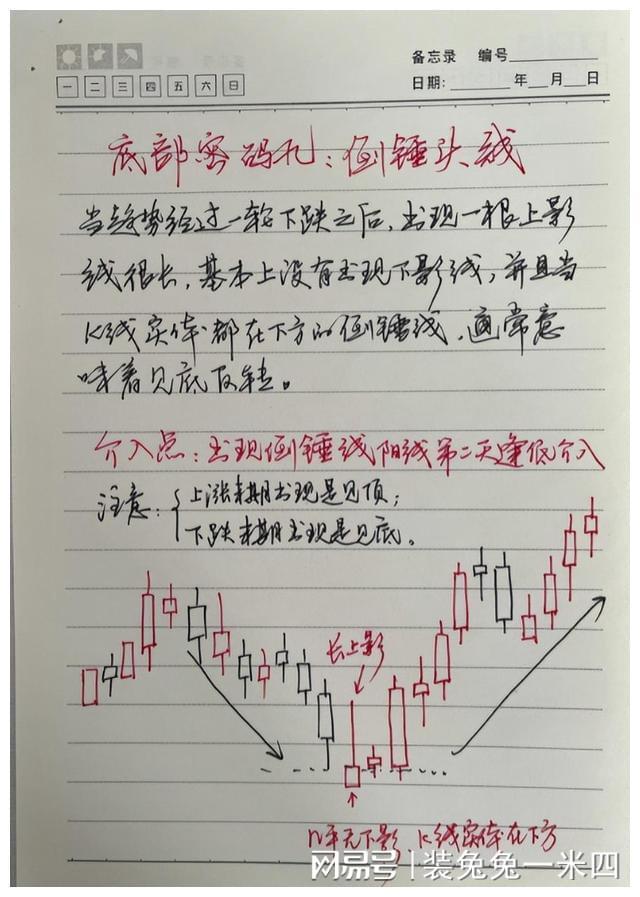 备忘录 编号
一 二 三 四 五 六 日
日期: 年 月 日
底部密码九:倒锤头线
当趋势经过一轮下跌之后,出现一根上影
线很长,基本上没有出现下影线,并且当
K线实体都在下方的倒锤线,通常意
味着见底反转。
介入点:出现倒锤线阳线第二天逢低介入
注意:
上涨末期出现是见顶;
下跌末期出现是见底。
长上影
几乎无下影 K线实体在下方
网易号 | 装兔兔一米四